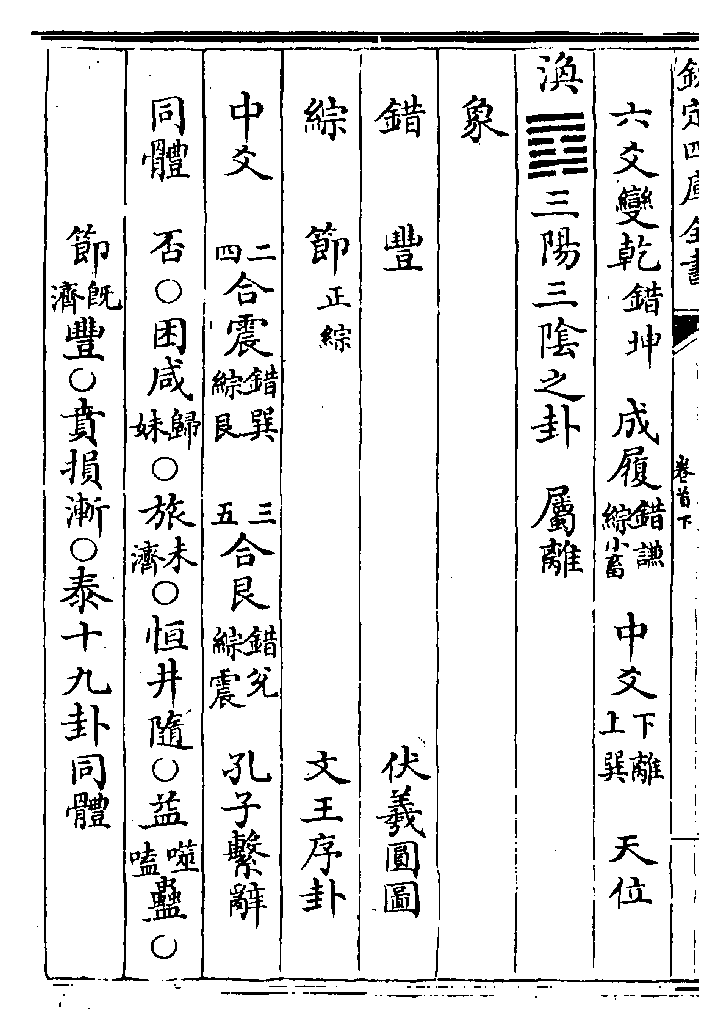 欽定四庫全書
卷首下
六爻變乾錯坤 成履錯謙綜小畜 中爻下離上巽 天位
渙䷺三陽三陰之卦 屬離
象
錯 豐 伏羲圓圖
綜 節正綜 文王序卦
中爻 二四合震錯巽綜艮 三五合艮錯兌綜震 孔子繫辭
同體 否○困咸歸妹○旅未濟○恒井隨○益噬嗑蠱○
節旣濟豐○賁損漸○泰十九卦同體